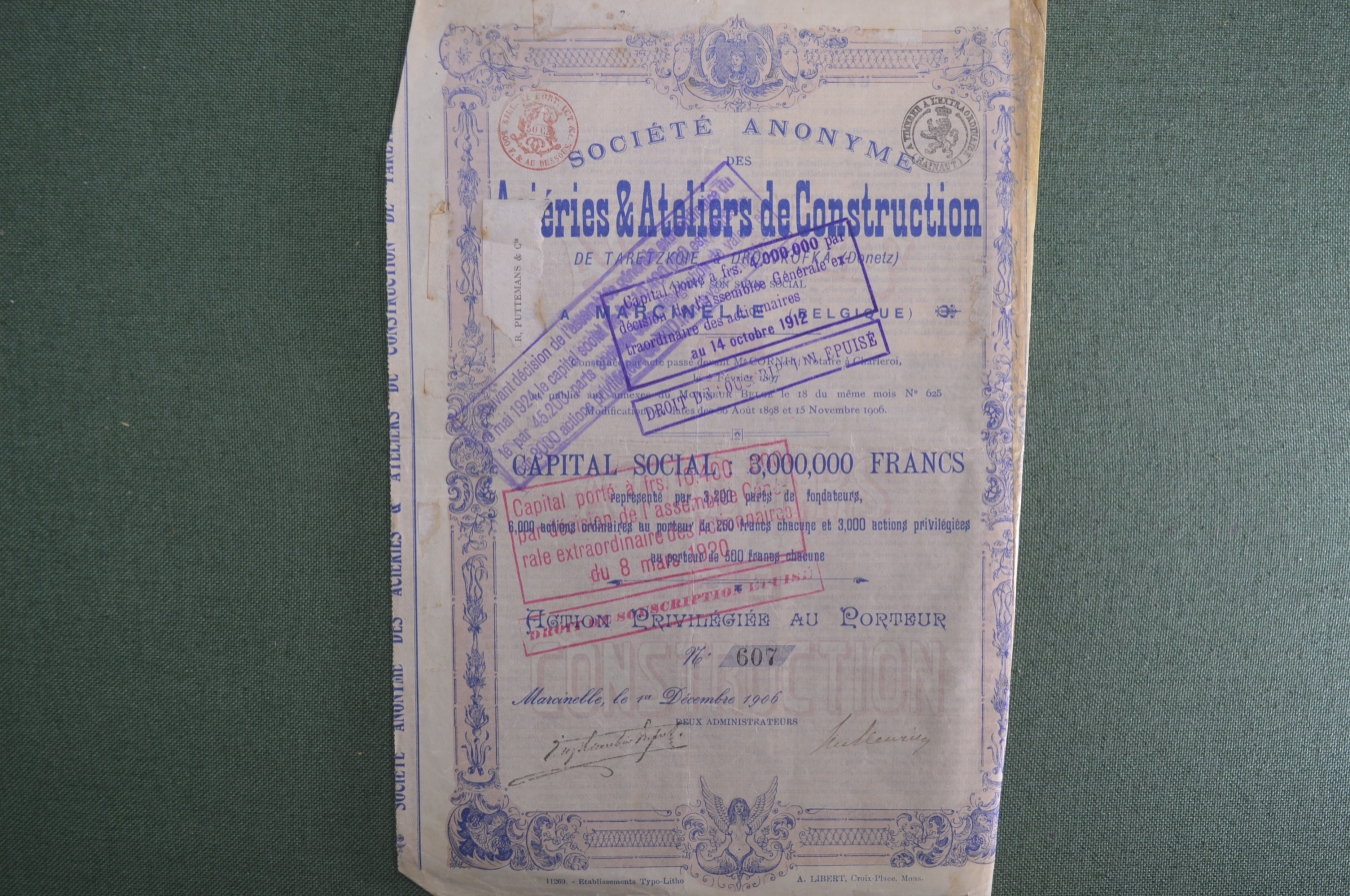 SOCIÉTÉ ANONYME
DES
Aciéries & Ateliers de Construction
DE TARETZKOIÉ & DROUJKOFKA (Donetz)
SON SIÈGE SOCIAL
A MARCINELLE (BELGIQUE)
Constituée par acte passé devant Me CORNIL, Notaire à Charleroi,
le 2 Février 1897
et publié aux annexes du MONITEUR BELGE le 18 du même mois No 625
Modifications datées des 30 Août 1898 et 13 Novembre 1906.
CAPITAL SOCIAL : 3,000,000 FRANCS
représenté par 3,200 parts de fondateurs,
6,000 actions ordinaires au porteur de 250 francs chacune et 3,000 actions privilégiées
au porteur de 500 francs chacune
ACTION PRIVILÉGIÉE AU PORTEUR
No 607
Marcinelle, le 1er Décembre 1906
DEUX ADMINISTRATEURS
11269. - Etablissements Typo-Litho
A. LIBERT, Croix-Place, Mons.
Capital porté à frs. 4.000.000 par
décision de l'Assemblée Générale ex-
traordinaire des actionnaires
au 14 octobre 1912
DROIT DE SOUSCRIPTION ÉPUISÉ
Suivant décision de l'assemblée générale extraordinaire du
mai 1924, le capital social
par 45.203 parts
actions
Capital porté à frs. 10.400.000
par décision de l'assemblée Géné-
rale extraordinaire des actionnaires
du 8 mars 1920
DROIT DE SOUSCRIPTION ÉPUISÉ
R. PUTTEMANS & Co
SOCIÉTÉ ANONYME DES ACIÉRIES & ATELIERS DE CONSTRUCTION DE TARE
CONSTRUCTION